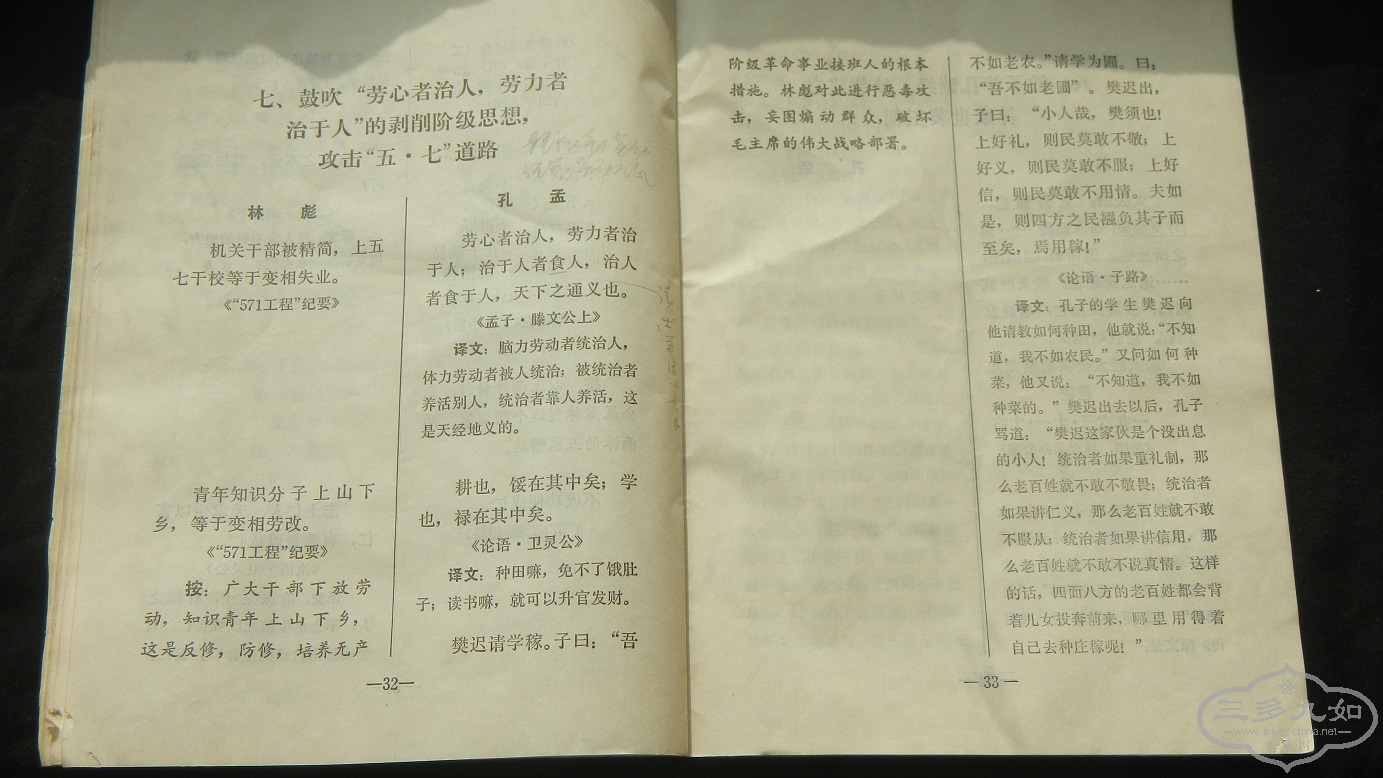 七、鼓吹“劳心者治人，劳力者
治于人”的剥削阶级思想，
攻击“五·七”道路
林 彪
机关干部被精简，上五
七干校等于变相失业。
《“571工程”纪要》
青年知识分子上山下
乡，等于变相劳改。
《“571工程”纪要》
按：广大干部下放劳
动，知识青年上山下乡，
这是反修，防修，培养无产
孔 孟
劳心者治人，劳力者治
于人；治于人者食人，治人
者食于人，天下之通义也。
《孟子·滕文公上》
译文：脑力劳动者统治人，
体力劳动者被人统治；被统治者
养活别人，统治者靠人养活，这
是天经地义的。
耕也，馁在其中矣；学
也，禄在其中矣。
《论语·卫灵公》
译文：种田嘛，免不了饿肚
子；读书嘛，就可以升官发财。
樊迟请学稼。子曰：“吾
—32—
阶级革命事业接班人的根本
措施。林彪对此进行恶毒攻
击，妄图煽动群众，破坏
毛主席的伟大战略部署。
不如老农。”请学为圃。曰：
“吾不如老圃”。樊迟出，
子曰：“小人哉，樊须也！
上好礼，则民莫敢不敬；上
好义，则民莫敢不服；上好
信，则民莫敢不用情。夫如
是，则四方之民襁负其子而
至矣，焉用稼！”
《论语·子路》
译文：孔子的学生樊迟向
他请教如何种田，他就说：“不知
道，我不如农民。”又问如何种
菜，他又说：“不知道，我不如
种菜的。”樊迟出去以后，孔子
骂道：“樊迟这家伙是个没出息
的小人！统治者如果重礼制，那
么老百姓就不敢不敬畏；统治者
如果讲仁义，那么老百姓就不敢
不服从；统治者如果讲信用，那
么老百姓就不敢不说真情。这样
的话，四面八方的老百姓都会背
着儿女投奔前来，哪里用得着
自己去种庄稼呢！”
—33—
三多久如
www.silver-china.net